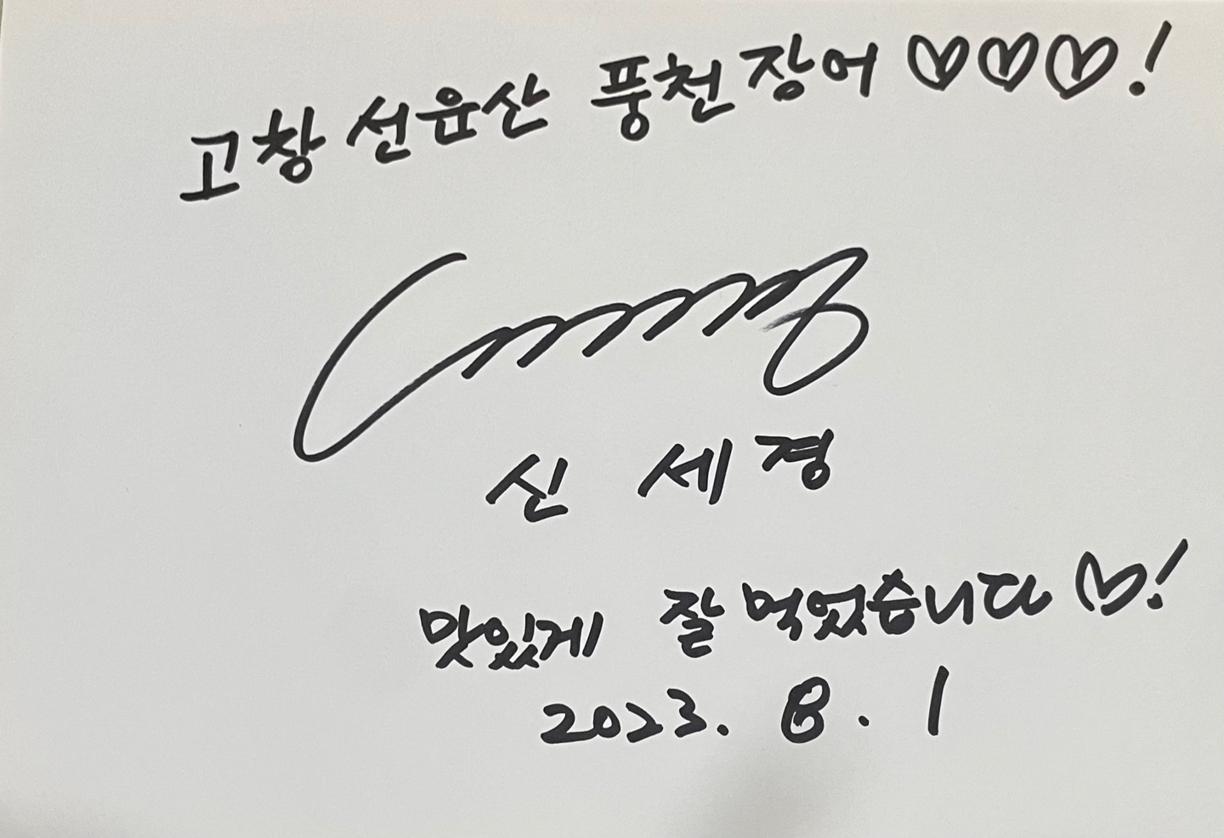 고창 선윤산 풍천장어 ♡♡♡!
신 세경
맛있게 잘 먹었습니다 ♡!
2023. 8. 1